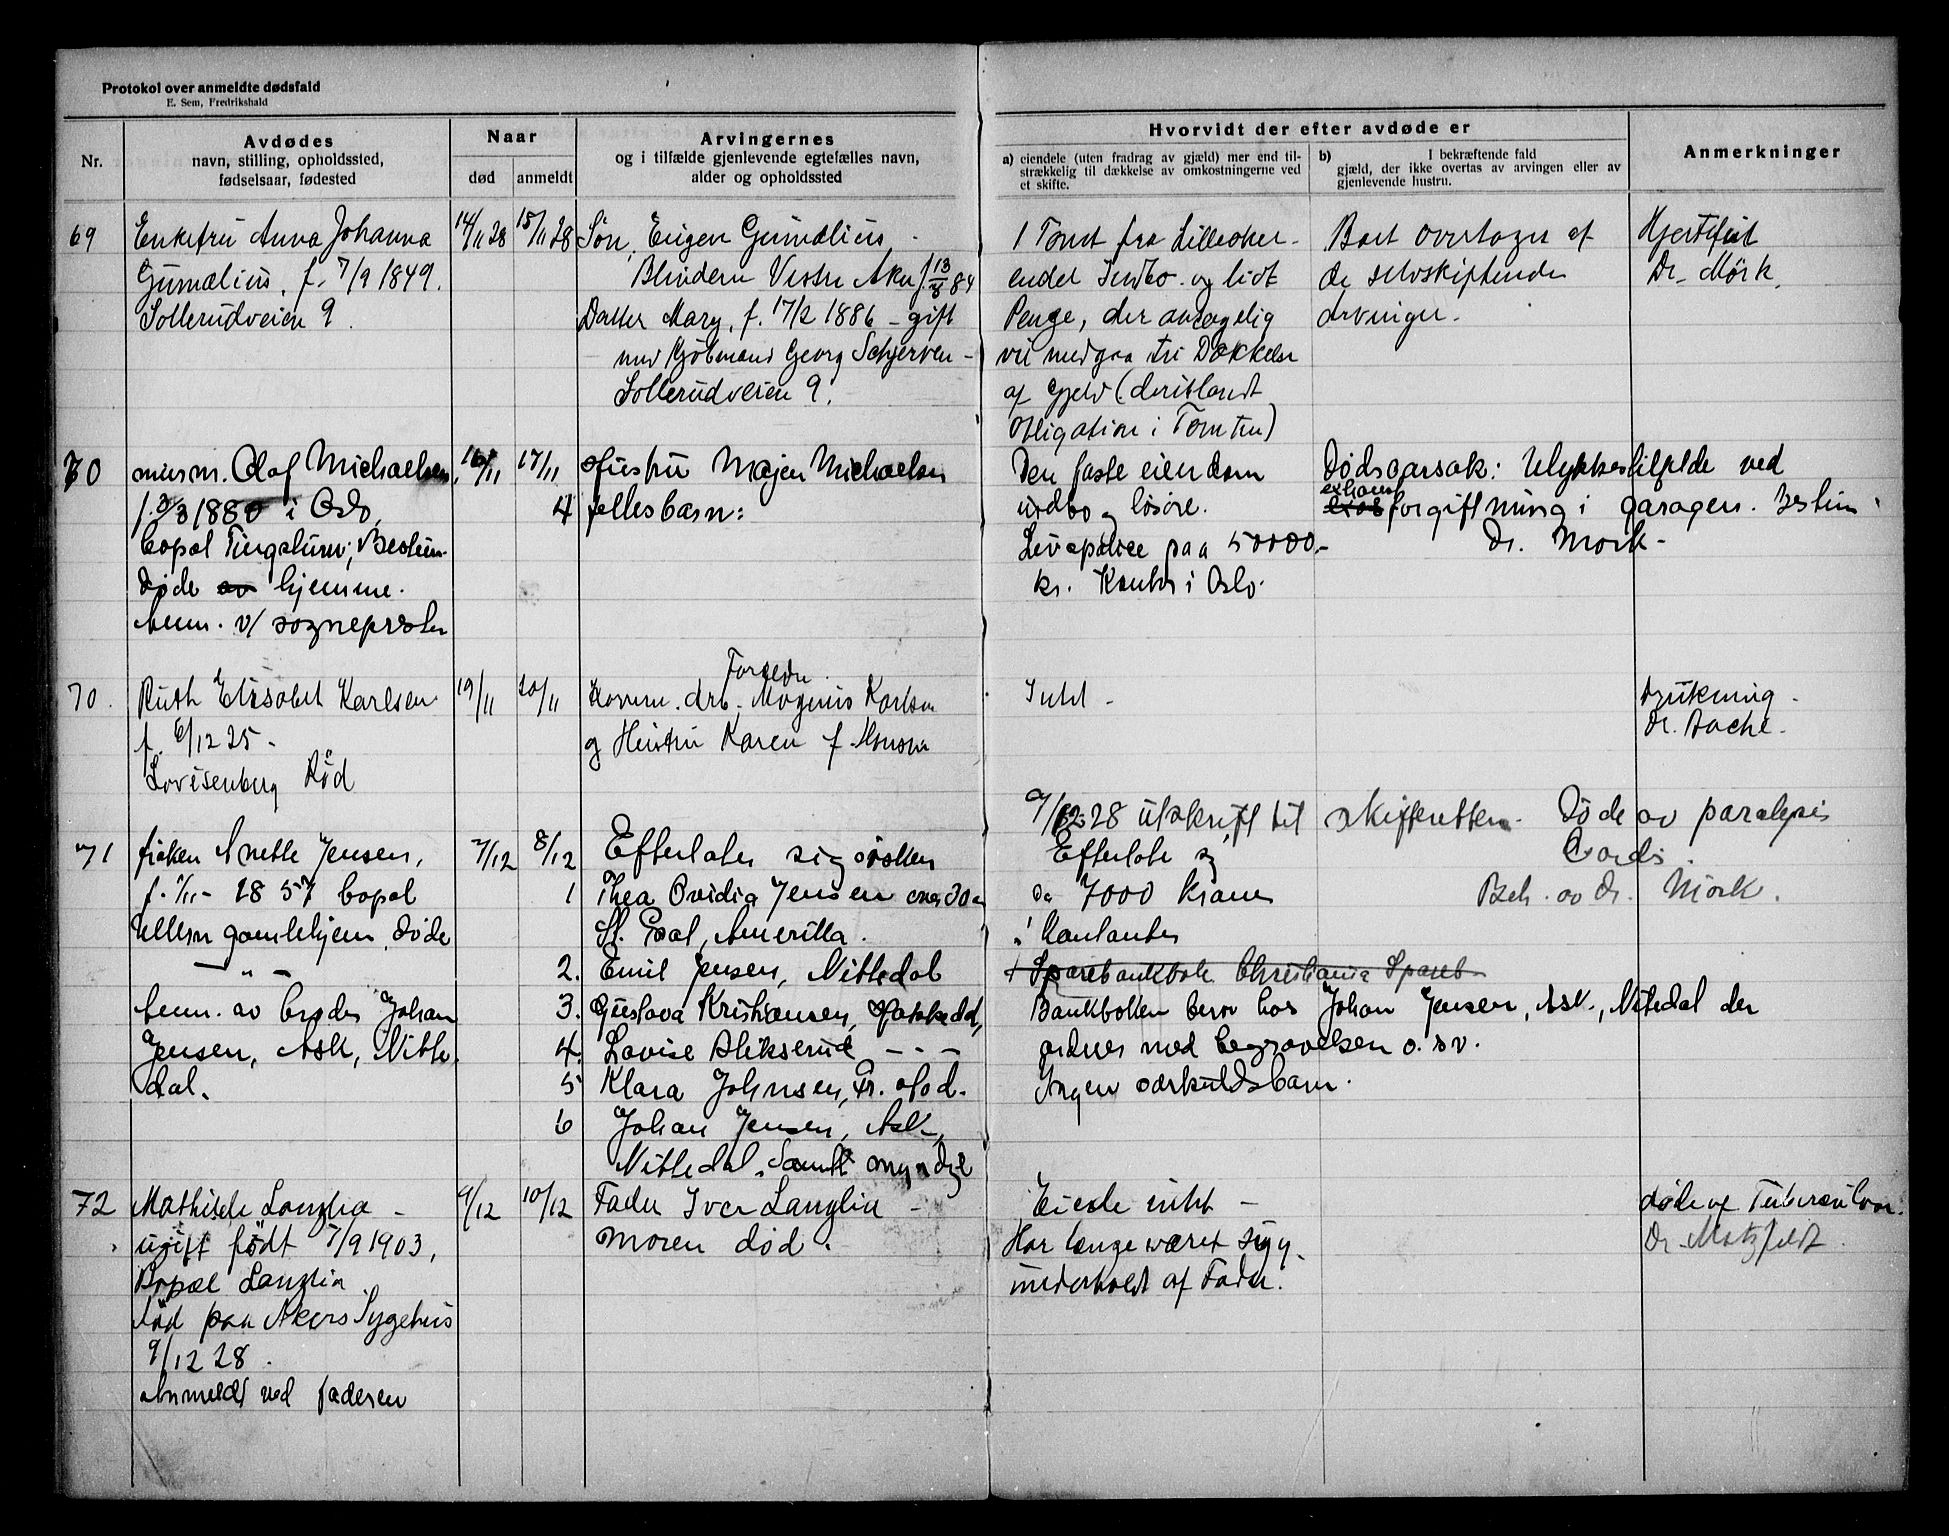 Protokol over anmeldte dødsfald
E. Sem, Fredrikshald
Nr.
Avdødes
navn, stilling, opholdssted,
fødselsaar, fødested
Naar
død
anmeldt
Arvingernes
og i tilfælde gjenlevende egtefælles navn,
alder og opholdssted
Hvorvidt der efter avdøde er
a) eiendele (uten fradrag av gjæld) mer end til-
strækkelig til dækkelse av omkostningerne ved
et skifte.
b) I bekræftende fald
gjæld, der ikke overtas av arvingen eller av
gjenlevende hustru.
Anmerkninger
69
Enkefru Anna Johanna
Gumælius, f. 7/9 1849.
Sollerudveien 9.
14/11 28
15/11 28
Søn, Eugen Gumælius,
Blindern Vestre Aker f 13/8 84
Datter Mary, f. 17/2 1886 - gift
med Kjøbmand Georg Schjerven -
Sollerudveien 9.
1 Tomt fra Lilleaker -
endel Indbo og lidt
Penge, der antagelig
vil medgaa til Dækkelse
af Gjeld (deriblandt
Obligation i Tomten)
Boet overtages af
de selvskiftende
Arvinger.
Hjertefeil
Dr. Mörk.
70
murm. Olaf Michaelsen,
f. 3/3 1880 i Oslo,
bopæl Tingstuen, Bestum.
Døde av hjemme.
Anm. v/ sognepresten
16/11
17/11
Hustru Majen Michaelsen
4 fellesbarn:
Den faste eiendom
indbo og løsøre.
Livspolice paa 50000,-
kr. Kontor i Oslo.
Dødsaarsak: Ulykkestilfelde ved
exhaust
forgiftning i garagen. Bestum
Dr. Mork -
70.
Ruth Elisabet Karlsen
f. 6/12 25 -
Lovisenberg Röd
19/11
20/11
Forældre.
Havnearb. Magnus Karlsen
og Hustru Karen f. Hansen
Intet -
Drukning -
Dr. Aache.
9/12 28 utskrift til skifteretten. Døde av paralysis
Cordis.
71
frøken Anette Jensen,
f. 7/11 - 1857 bopæl
Ullern gamlehjem, døde
- " -
Anm. av broder Johan
Jensen, Ask, Nitte-
dal.
7/12
8/12
Efterlater sig søsken
1 Thea Ovidia Jensen over 70 a
St. Paal, Amerikka.
2. Emil Jensen, Nittedal
3. Gustava Kristiansen, Hakkedal,
4. Lovise Slikserud - " -
5 Klara Johnsen, Fr. stad.
6 Johan Jensen, Ask,
Nittedal. Samtl. myndige
Efterlot sig
ca 7000 kroner
i Kontanter
i Sparebankbok Christiania Spareb
Beh. av Dr. Mork.
Bankboken beror hos Johan Jensen, Ask, Nitedal der
ordner med begravelsen o. s v.
Ingen særkuldsbarn.
72
Mathilde Langlia -
ugift født 7/9 1903,
Bopæl Langlia
død paa Akers Sygehus
9/12 28.
Anmeldt ved faderen
9/12
10/12
Fader Iver Langlia -
Moren død.
Eiede intet -
Har længe været syg,
underholdt af Fader.
døde af Tuberculose.
Dr. Motzfeldt